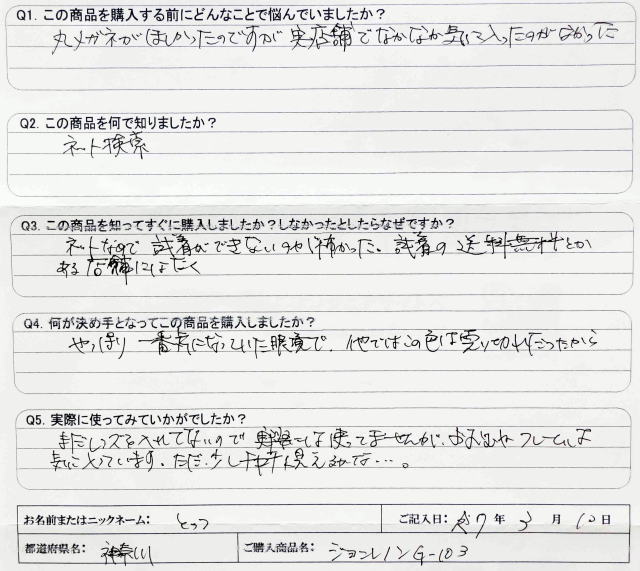 Q1. この商品を購入する前にどんなことで悩んでいましたか？
丸メガネがほしかったのですが 実店舗でなかなか気に入ったのがなかった
Q2. この商品を何で知りましたか？
ネット検索
Q3. この商品を知ってすぐに購入しましたか？しなかったとしたらなぜですか？
ネットなので 試着ができないのが怖かった。試着の送料無料とか
ある店舗にはだく
Q4. 何が決め手となってこの商品を購入しましたか？
やっぱり 一番気になっていた眼鏡で、他ではこの色は売り切れだったから
Q5. 実際に使ってみていかがでしたか？
まだレンズを入れてないので 実際には使ってませんが、 フレームは
気に入っています。ただ、少し 見えるかな…。
お名前またはニックネーム： とっつ ご記入日： 7年 3月 10日
都道府県名： 神奈川 ご購入商品名： ジョンレノン G-103